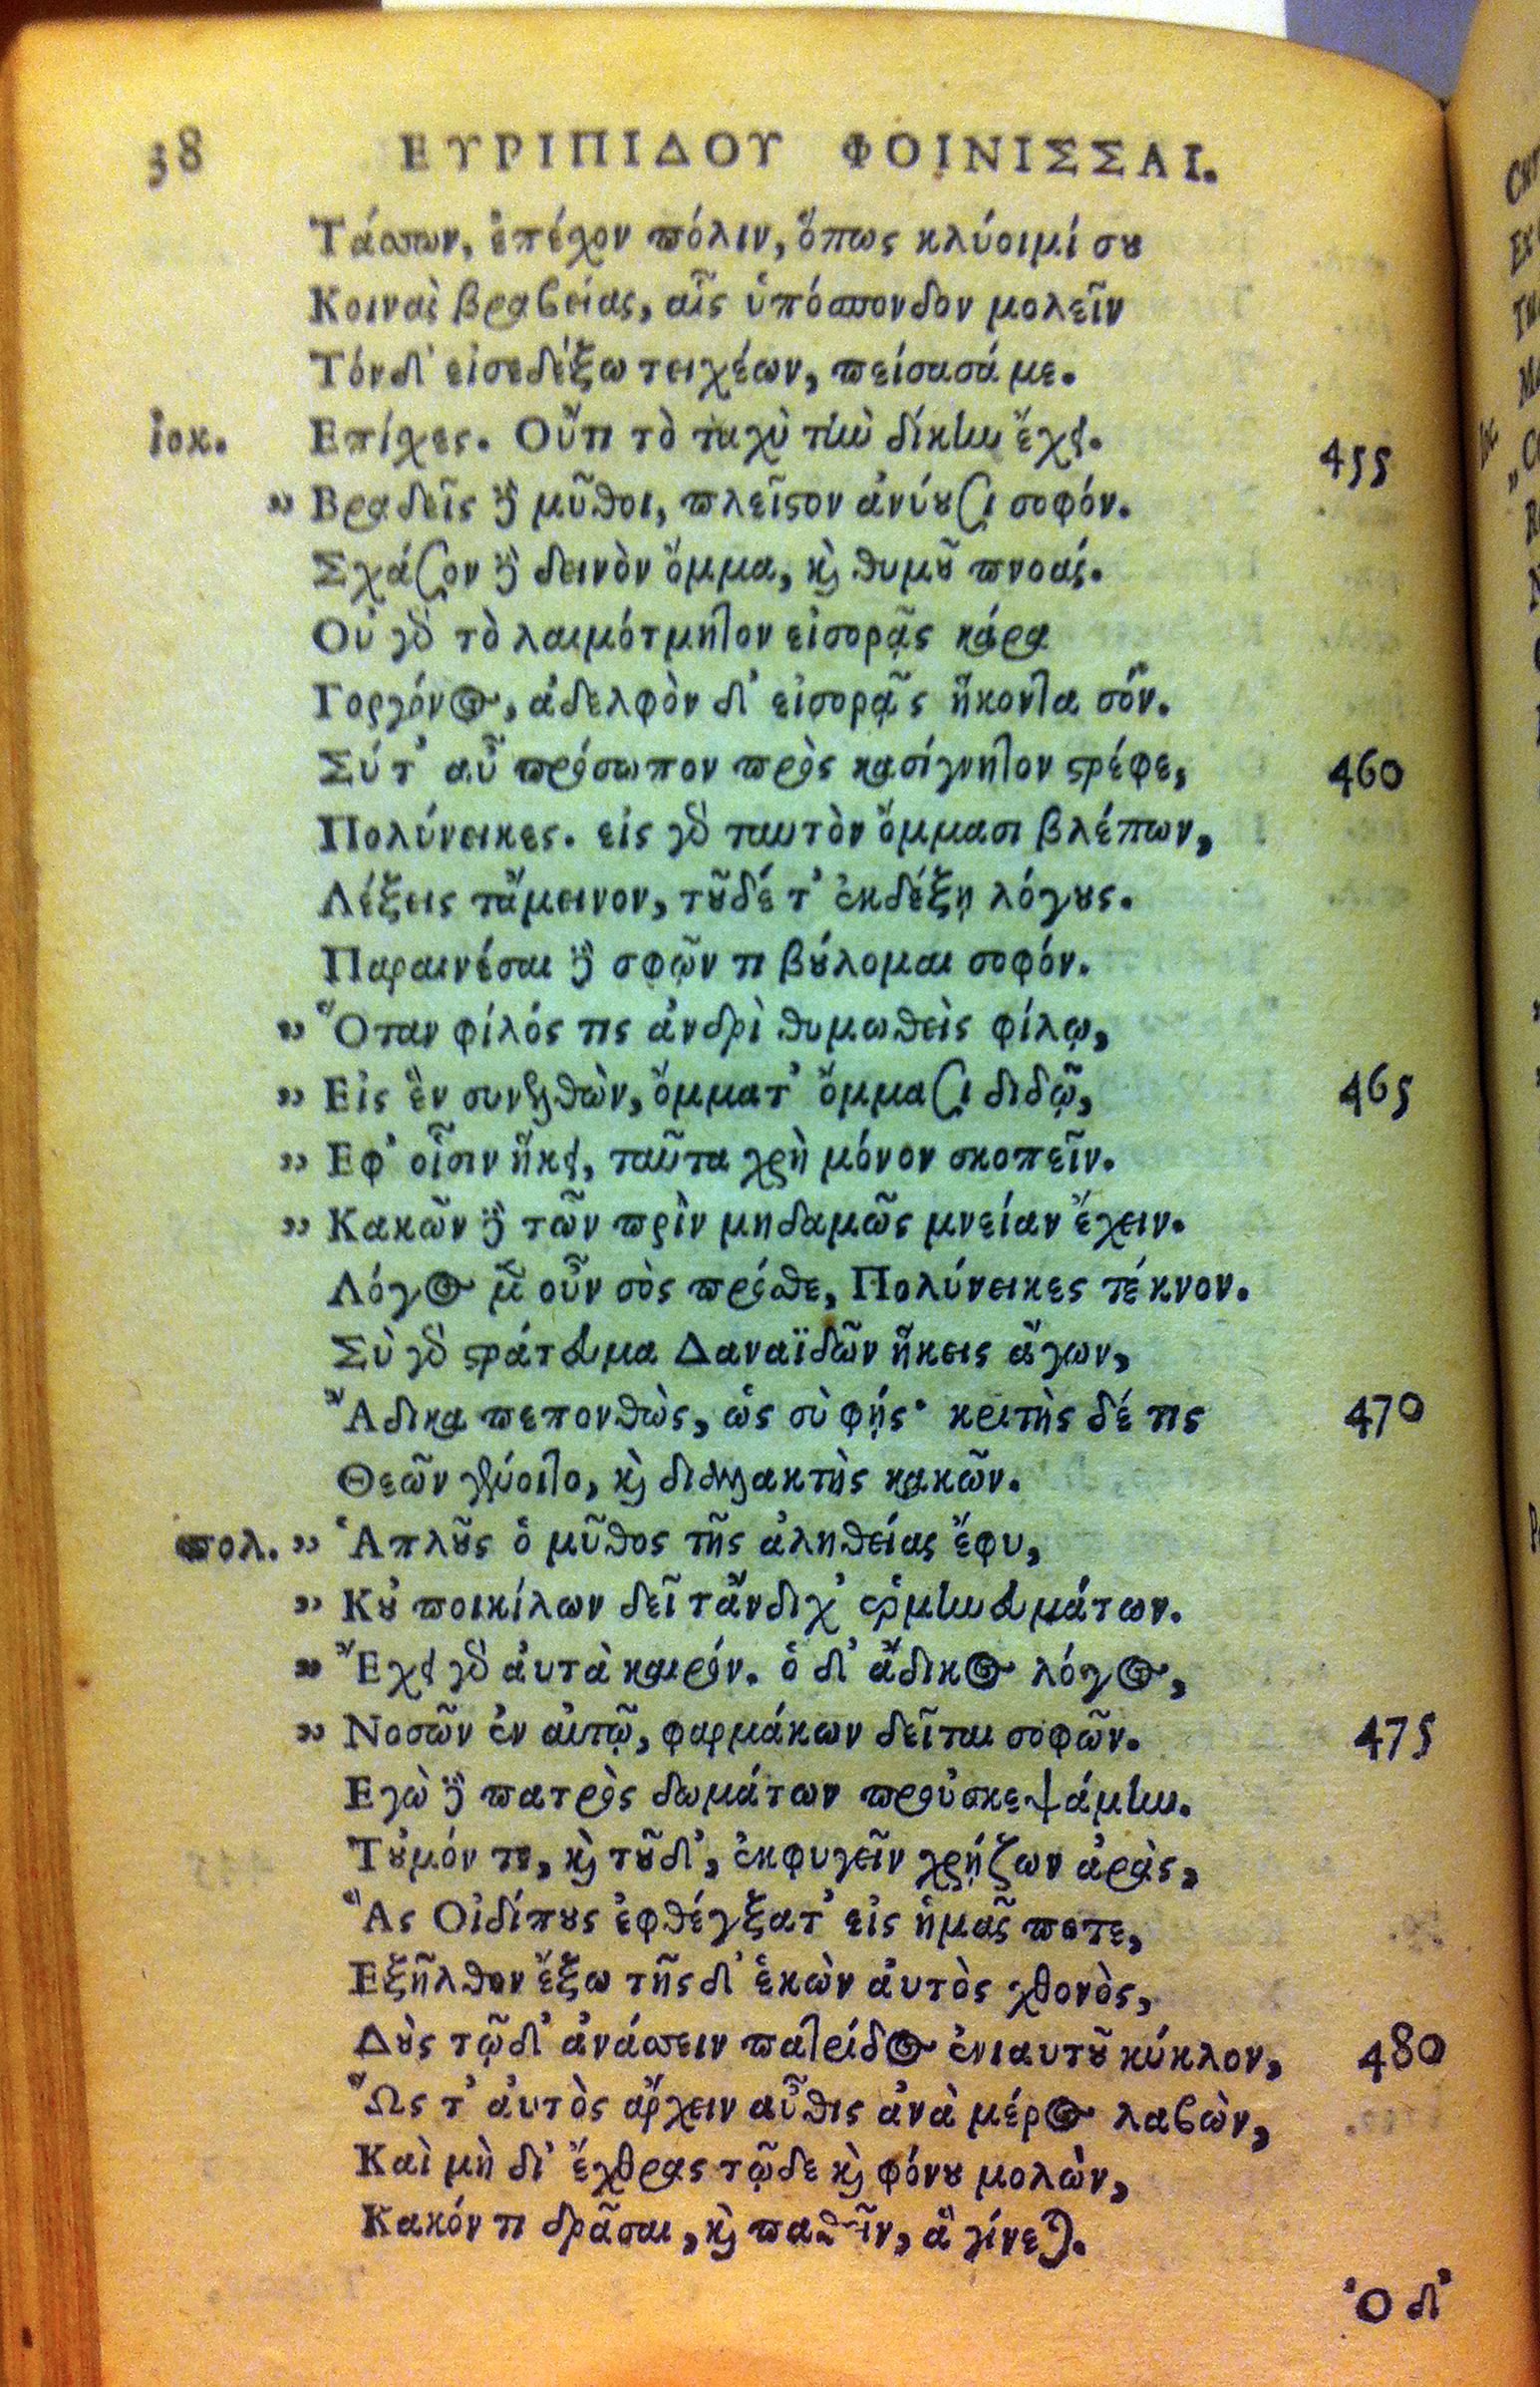 38 ΕΥΡΙΠΙΔΟΥ ΦΟΙΝΙΣΣΑΙ.
Τάσσων, ἐπέσχον πόλιν, ὅπως κλύοιμί σου
Κοινὰς βραβείας, αἷς ὑπόσπονδον μολεῖν
Τόνδ' εἰσεδέξω τειχέων, πείσασά με.
ἰοκ. Επίσχες. Οὔτι τὸ ταχὺ τὴν δίκην ἔχει. 455
" Βραδεῖς δὲ μῦθοι, πλεῖστον ἀνύουσι σοφόν.
Σχάσον δὲ δεινὸν ὄμμα, καὶ θυμοῦ πνοάς.
Οὐ γὰρ τὸ λαιμότμητον εἰσορᾷς κάρα
Γοργόνος, ἀδελφὸν δ' εἰσορᾷς ἥκοντα σόν.
Σύτ' αὖ πρόσωπον πρὸς κασίγνητον στρέφε, 460
Πολύνεικες. εἰς γὰρ ταυτὸν ὄμμασι βλέπων,
Λέξεις τἄμεινον, τοῦδέ τ' ἐκδέξῃ λόγους.
Παραινέσαι δὲ σφῷν τι βούλομαι σοφόν.
" Ὅταν φίλός τις ἀνδρὶ θυμωθεὶς φίλῳ,
" Εἰς ἓν συνελθὼν, ὄμματ' ὄμμασι διδῷ, 465
" Εφ' οἷσιν ἥκει, ταῦτα χρὴ μόνον σκοπεῖν.
" Κακῶν δὲ τῶν πρὶν μηδαμῶς μνείαν ἔχειν.
Λόγος μὲν οὖν σὸς πρόσθε, Πολύνεικες τέκνον.
Σὺ γὰρ στράτευμα Δαναϊδῶν ἥκεις ἄγων,
Ἄδικα πεπονθὼς, ὡς σὺ φῄς· κριτὴς δέ τις 470
Θεῶν γένοιτο, καὶ διαλλακτὴς κακῶν.
πολ. " Ἁπλοῦς ὁ μῦθος τῆς ἀληθείας ἔφυ,
" Κοὐ ποικίλων δεῖ τἄνδιχ' ἑρμηνευμάτων.
" Ἔχει γὰρ ἀυτὰ καιρόν. ὁ δ' ἄδικος λόγος,
" Νοσῶν ἐν αὑτῷ, φαρμάκων δεῖται σοφῶν. 475
Εγὼ δὲ πατρὸς δωμάτων προὐσκεψάμην.
Τοὐμόν τε, καὶ τοῦδ', ἐκφυγεῖν χρῄζων ἀρὰς,
Ἃς Οἰδίπους ἐφθέγξατ' εἰς ἡμᾶς ποτε,
Εξῆλθον ἔξω τῆςδ' ἑκὼν ἀυτὸς χθονὸς,
Δοὺς τῷδ' ἀνάσσειν πατρίδος ἐνιαυτοῦ κύκλον, 480
Ὥς τ' ἀυτὸς ἄρχειν αὖθις ἀνὰ μέρος λαβὼν,
Καὶ μὴ δι' ἔχθρας τῷδε καὶ φόνου μολὼν,
Κακόν τι δρᾶσαι, καὶ παθεῖν, ἃ γίνεται.
Ὁ δ'